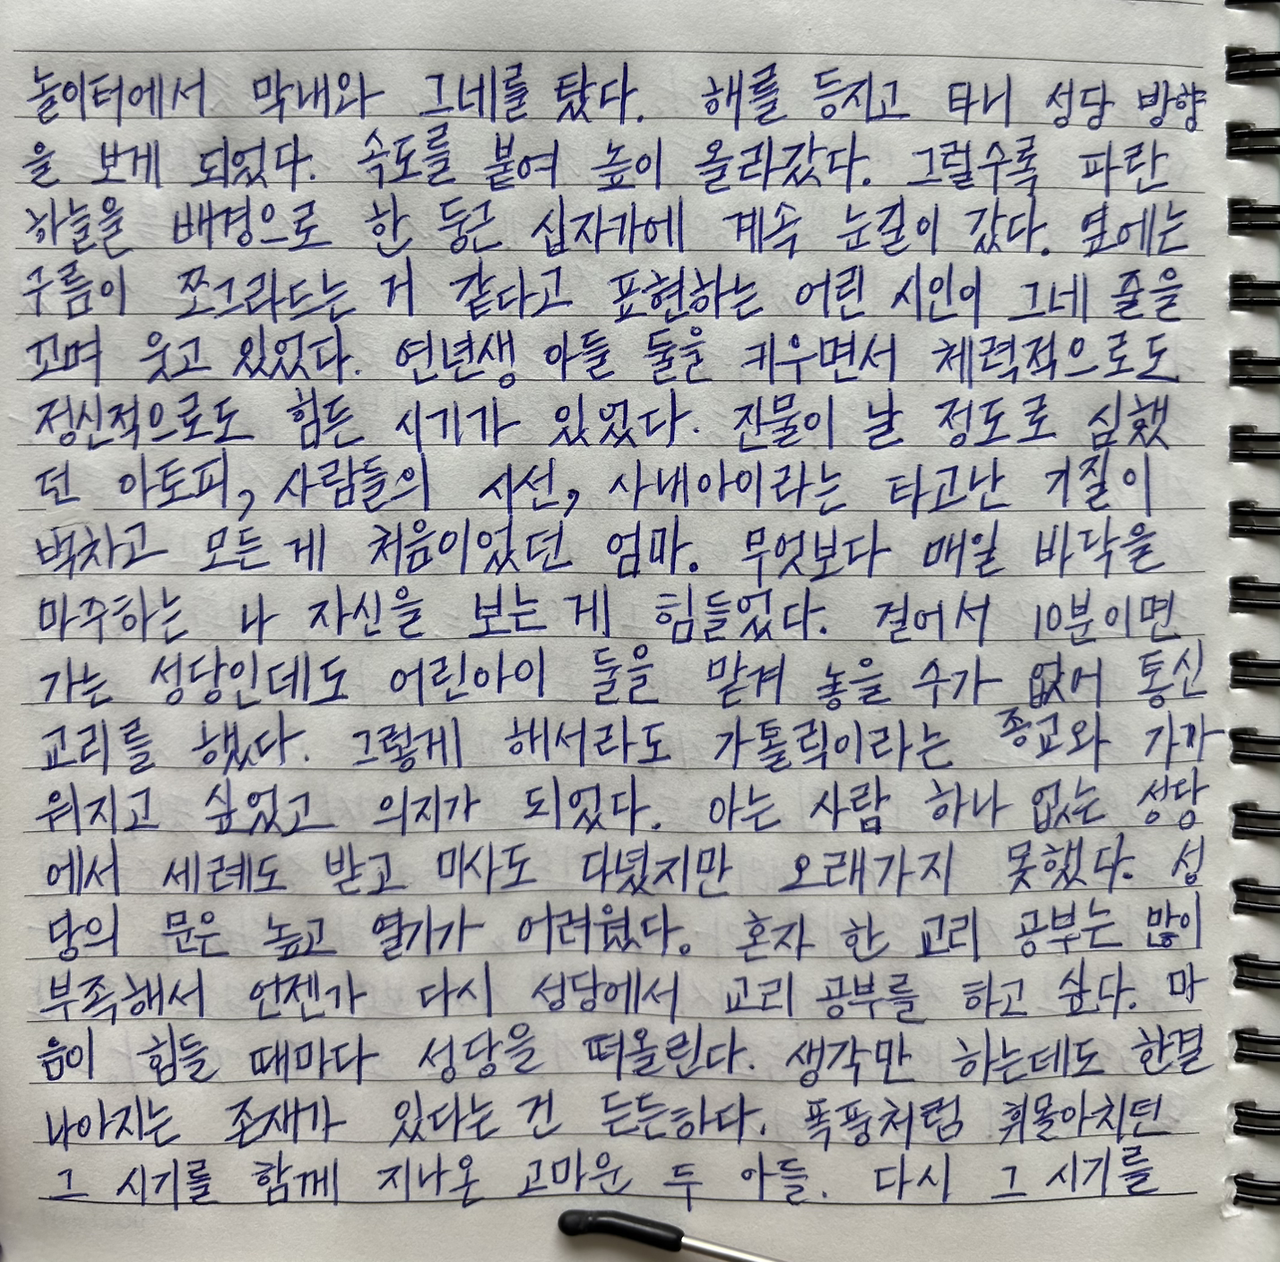 놀이터에서 막내와 그네를 탔다. 해를 등지고 타니 성당 방향
을 보게 되었다. 속도를 붙여 높이 올라갔다. 그럴수록 파란
하늘을 배경으로 한 둥근 십자가에 계속 눈길이 갔다. 옆에는
구름이 쪼그라드는 거 같다고 표현하는 어린 시인이 그네 줄을
꼬며 웃고 있었다. 연년생 아들 둘을 키우면서 체력적으로도
정신적으로도 힘든 시기가 있었다. 진물이 날 정도로 심했
던 아토피, 사람들의 시선, 사내아이라는 타고난 기질이
벅차고 모든 게 처음이었던 엄마. 무엇보다 매일 바닥을
마주하는 나 자신을 보는 게 힘들었다. 걸어서 10분이면
가는 성당인데도 어린아이 둘을 맡겨 놓을 수가 없어 통신
교리를 했다. 그렇게 해서라도 가톨릭이라는 종교와 가까
워지고 싶었고 의지가 되었다. 아는 사람 하나 없는 성당
에서 세례도 받고 미사도 다녔지만 오래가지 못했다. 성
당의 문은 높고 열기가 어려웠다. 혼자 한 교리 공부는 많이
부족해서 언젠가 다시 성당에서 교리 공부를 하고 싶다. 마
음이 힘들 때마다 성당을 떠올린다. 생각만 하는데도 한결
나아지는 존재가 있다는 건 든든하다. 폭풍처럼 휘몰아치던
그 시기를 함께 지나온 고마운 두 아들. 다시 그 시기를